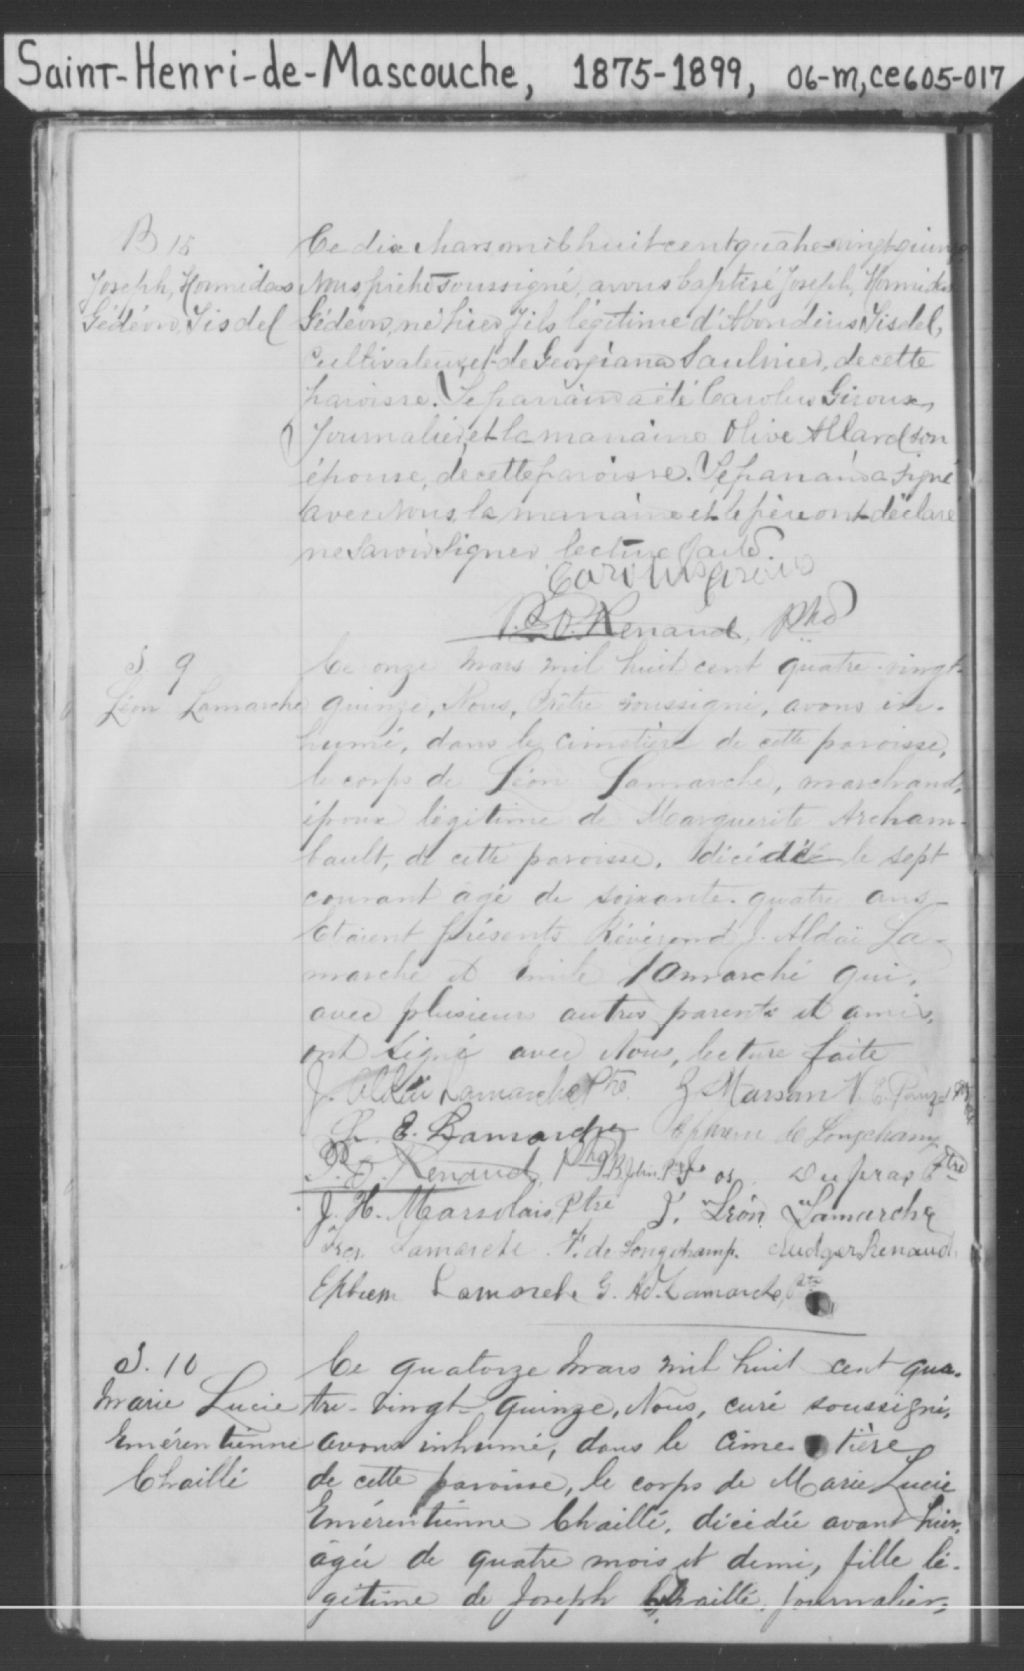 Saint-Henri-de-Mascouche, 1875-1899, 06-m,ce605-017
B 15
Joseph, Hormidas
Gédéon, Tisdel
Ce dix Mars mil huit cent quatre-vingt-quinze
Nous prêtre soussigné, avons baptisé Joseph, Hormidas
Gédéon, né hier, fils légitime d'Abondius Tisdel,
cultivateur, et de Georgiana Saulnier, de cette
paroisse. Le parrain a été Carolus Giroux,
journalier, et la marraine Olive Allard son
épouse, de cette paroisse. Le parrain a signé
avec Nous, la marraine et le père ont déclaré
ne savoir signer, lecture faite.
Carolus Giroux
Renaud, Ptre
S. 9
Léon Lamarche
Ce onze Mars mil huit cent quatre-vingt-
quinze, Nous, Prêtre soussigné, avons in-
humé, dans le cimetière de cette paroisse,
le corps de Léon Lamarche, marchand,
époux légitime de Marguerite Archam-
bault, de cette paroisse, décédé le sept
courant âgé de soixante-quatre ans
Etaient présents Révérend J. Aldaï La-
marche et Emile Lamarche qui,
avec plusieurs autres parents et amis,
ont signé avec Nous, lecture faite
J. Aldaï Lamarche Ptre. Marsan
E. Lamarche Ephrem de Longchamp
Renaud, Ptre Dupras Ptre
J. H. Marsolais, Ptre J. Léon Lamarche
Lamarche F. de Longchamp. Rudger Renaud
Ephrem Lamarche G. Ad. Lamarche, Ptre
S. 10
Marie Lucie
Emérentienne
Chaillé
Ce quatorze Mars mil huit cent qua-
tre-vingt-quinze, Nous, curé soussigné,
avons inhumé, dans le cimetière
de cette paroisse, le corps de Marie Lucie
Emérentienne Chaillé, décédée avant hier,
âgée de quatre mois et demi, fille lé-
gitime de Joseph Chaillé, journalier,